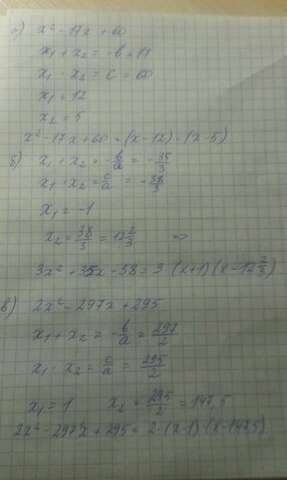 а) x² - 17x + 60
x₁ + x₂ = -b = 17
x₁ · x₂ = c = 60
x₁ = 12
x₂ = 5
x² - 17x + 60 = (x - 12) · (x - 5)
б) x₁ + x₂ = -b/a = -35/3
x₁ · x₂ = c/a = -38/3
x₁ = -1
x₂ = 38/3 = 12 2/3 =>
3x² + 35x - 38 = 3 (x+1) (x - 12 2/3)
в) 2x² - 297x + 295
x₁ + x₂ = -b/a = 297/2
x₁ · x₂ = c/a = 295/2
x₁ = 1 x₂ = 295/2 = 147,5
2x² - 297x + 295 = 2 · (x - 1) (x - 147,5)